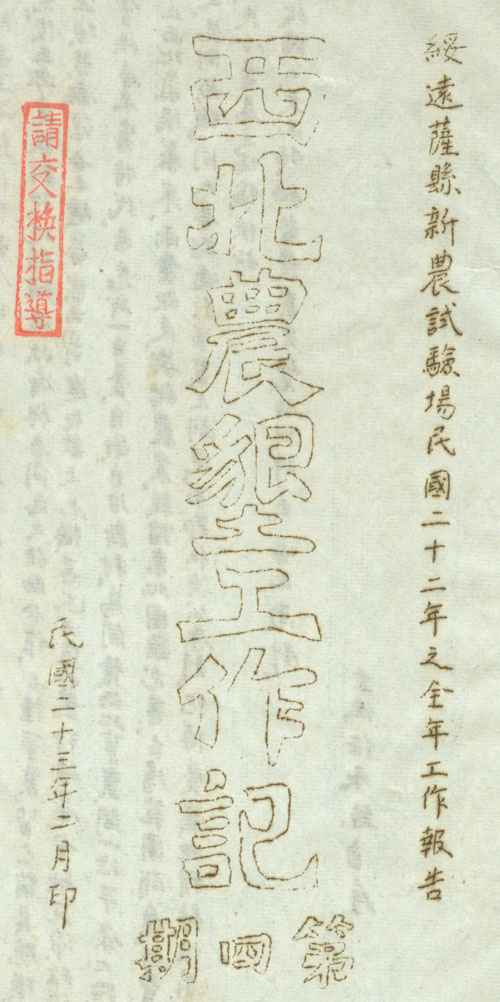 綏遠薩縣新農試驗場民國二十二年之全年工作報告
西北農墾工作記
第四期
民國二十三年二月印
請交換指導